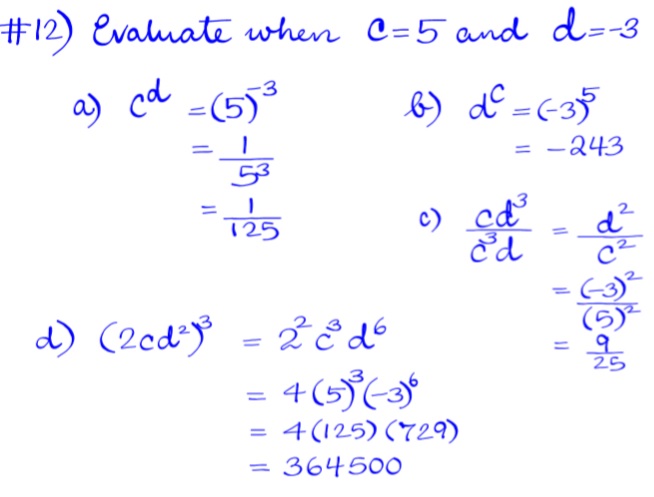 #12) Evaluate when c=5 and d=-3
a) c^d = (5)^-3
= 1/5^3
= 1/125
b) d^c = (-3)^5
= -243
c) cd^3/c^3d = d^2/c^2
= (-3)^2/(5)^2
= 9/25
d) (2cd^2)^3 = 2^2 c^3 d^6
= 4(5)^3(-3)^6
= 4(125)(729)
= 364500